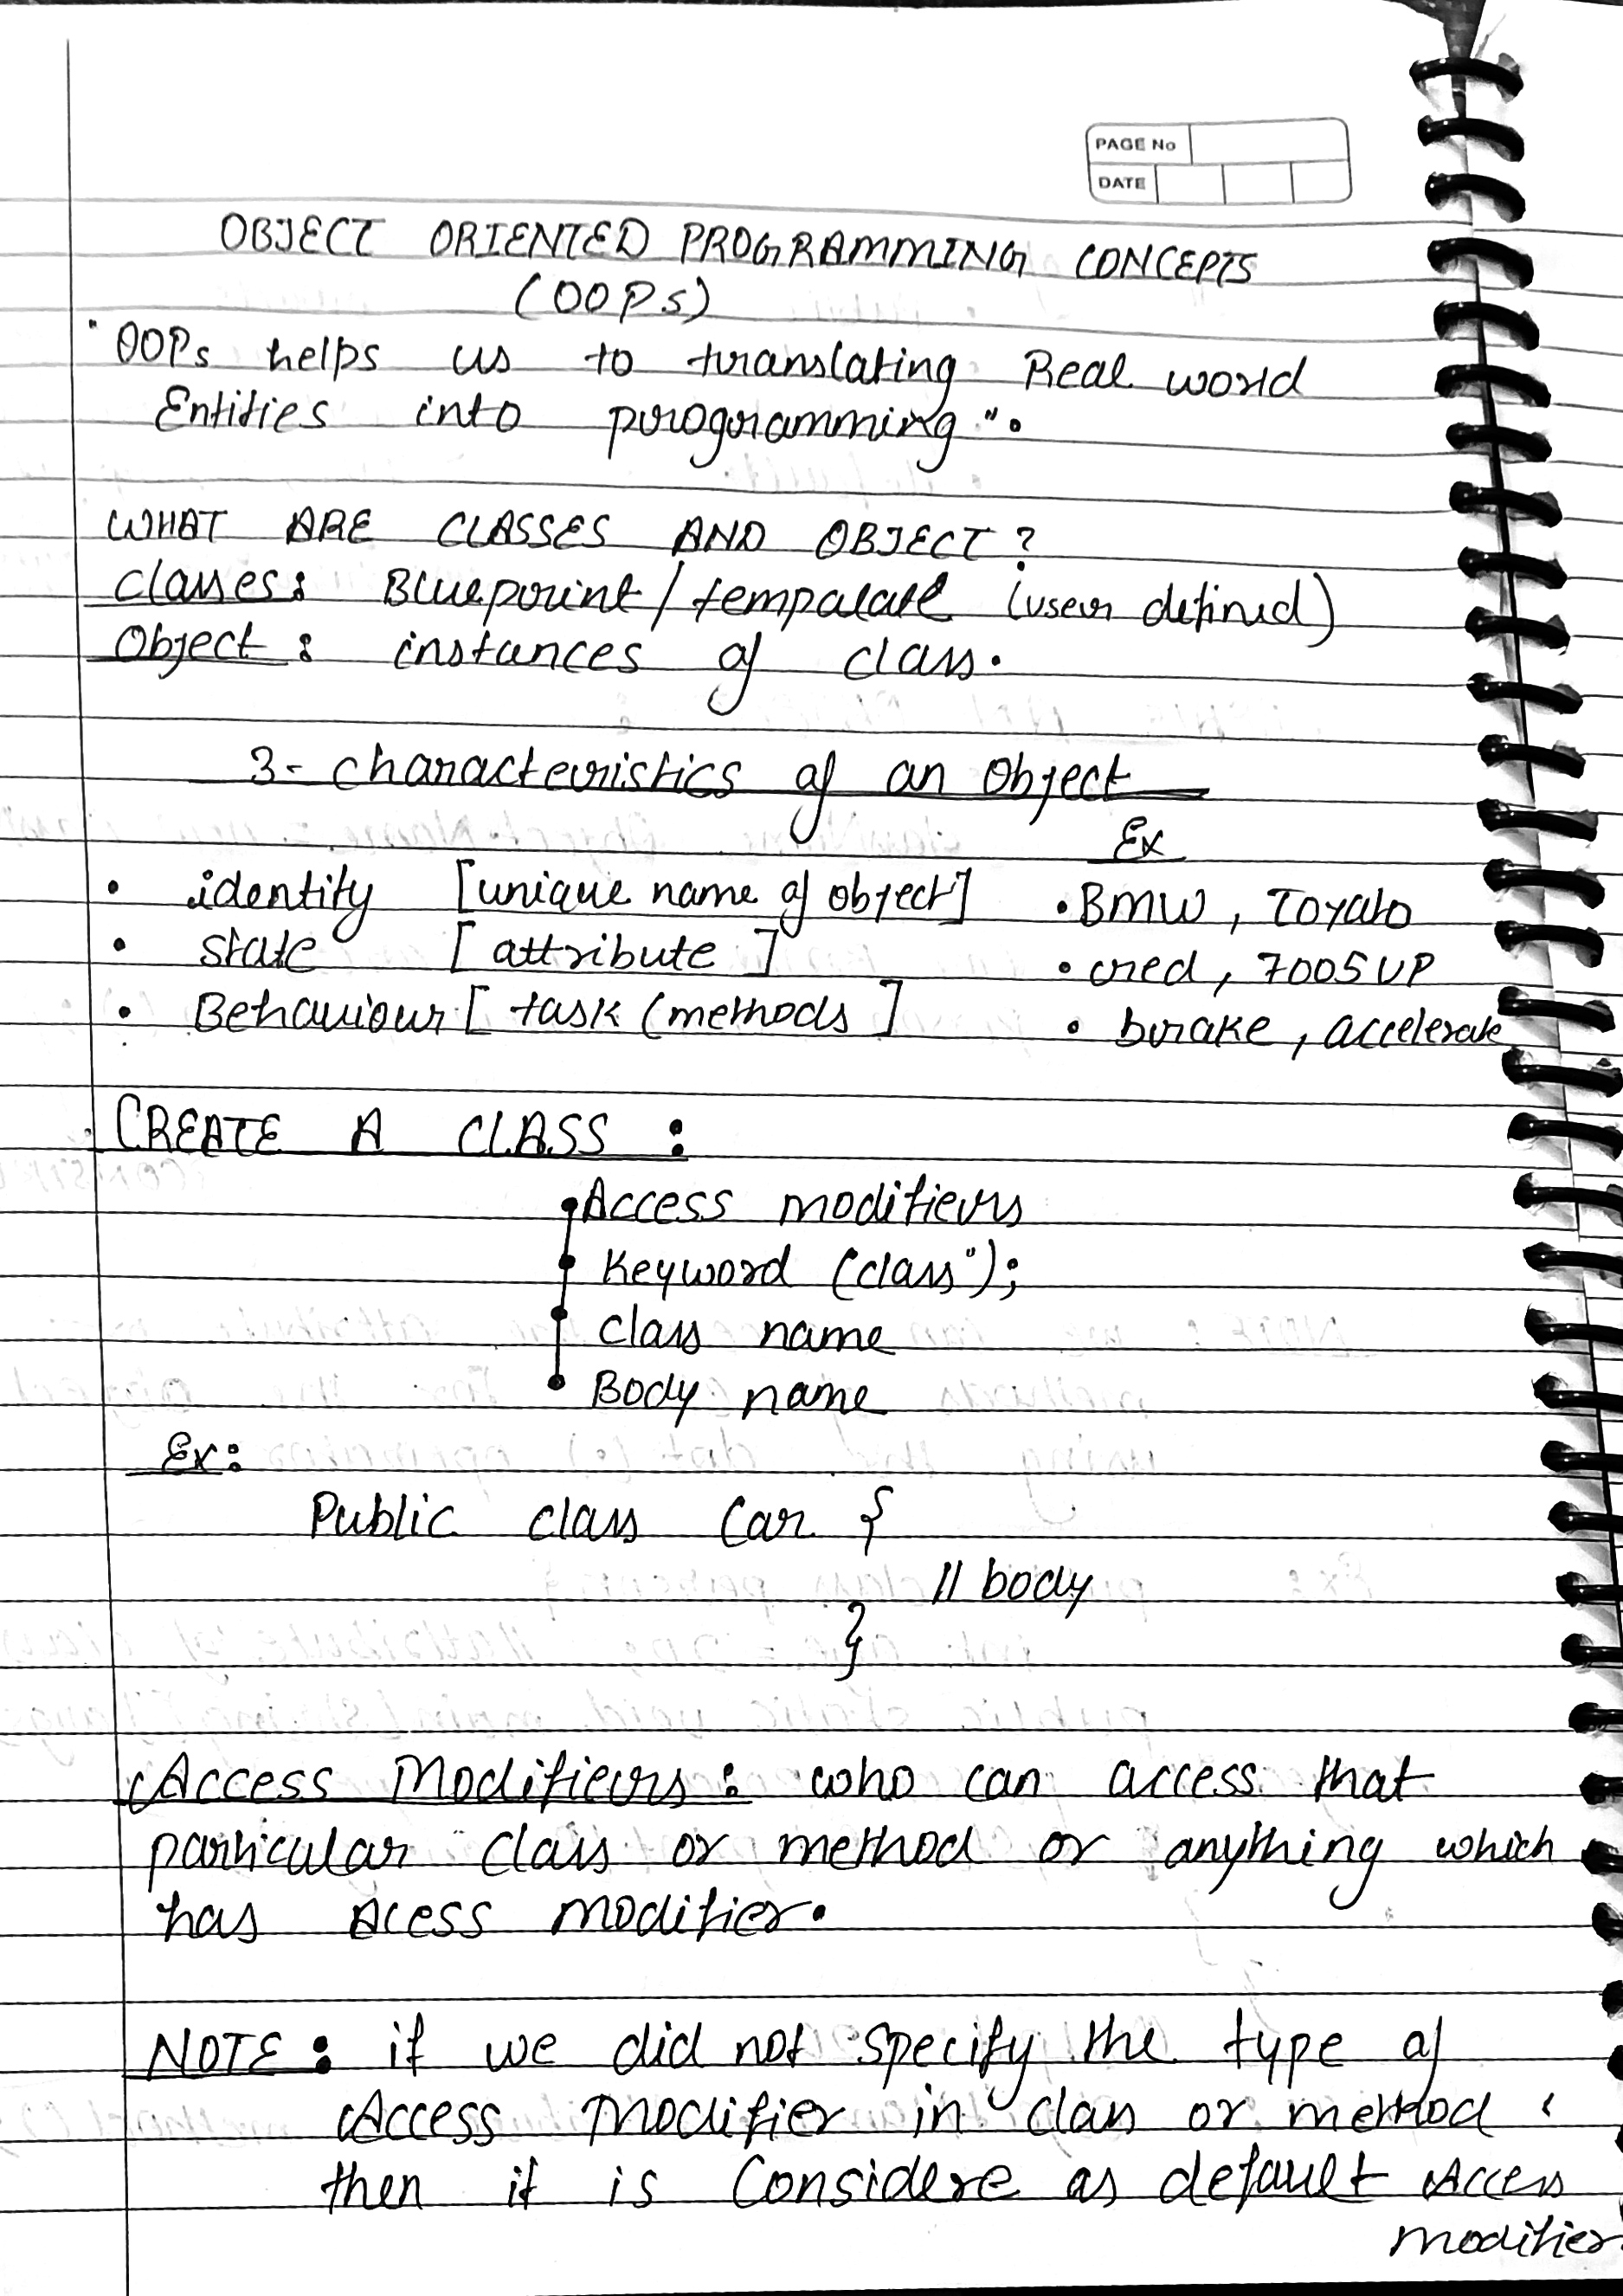 PAGE No
DATE
OBJECT ORIENTED PROGRAMMING CONCEPTS
(OOPs)
"OOPs helps us to translating Real world
Entities into programming".
WHAT ARE CLASSES AND OBJECT?
Classes: Blueprint/tempalate (user defined)
Object: instances of class.
3- characteristics of an Object
Ex
• identity [unique name of object] • BMW, Toyato
• state [attribute] • red, 700SUP
• Behaviour [task (methods] • brake, accelerate
CREATE A CLASS:
• Access modifiers
• Keyword (class");
• class name
• Body name
Ex:
Public class Car {
// body
}
Access Modifiers: who can access that
particular class or method or anything which
has Acess modifier.
NOTE: if we did not specify the type of
Access Modifier in class or method
then it is Considere as default Access
modifier.